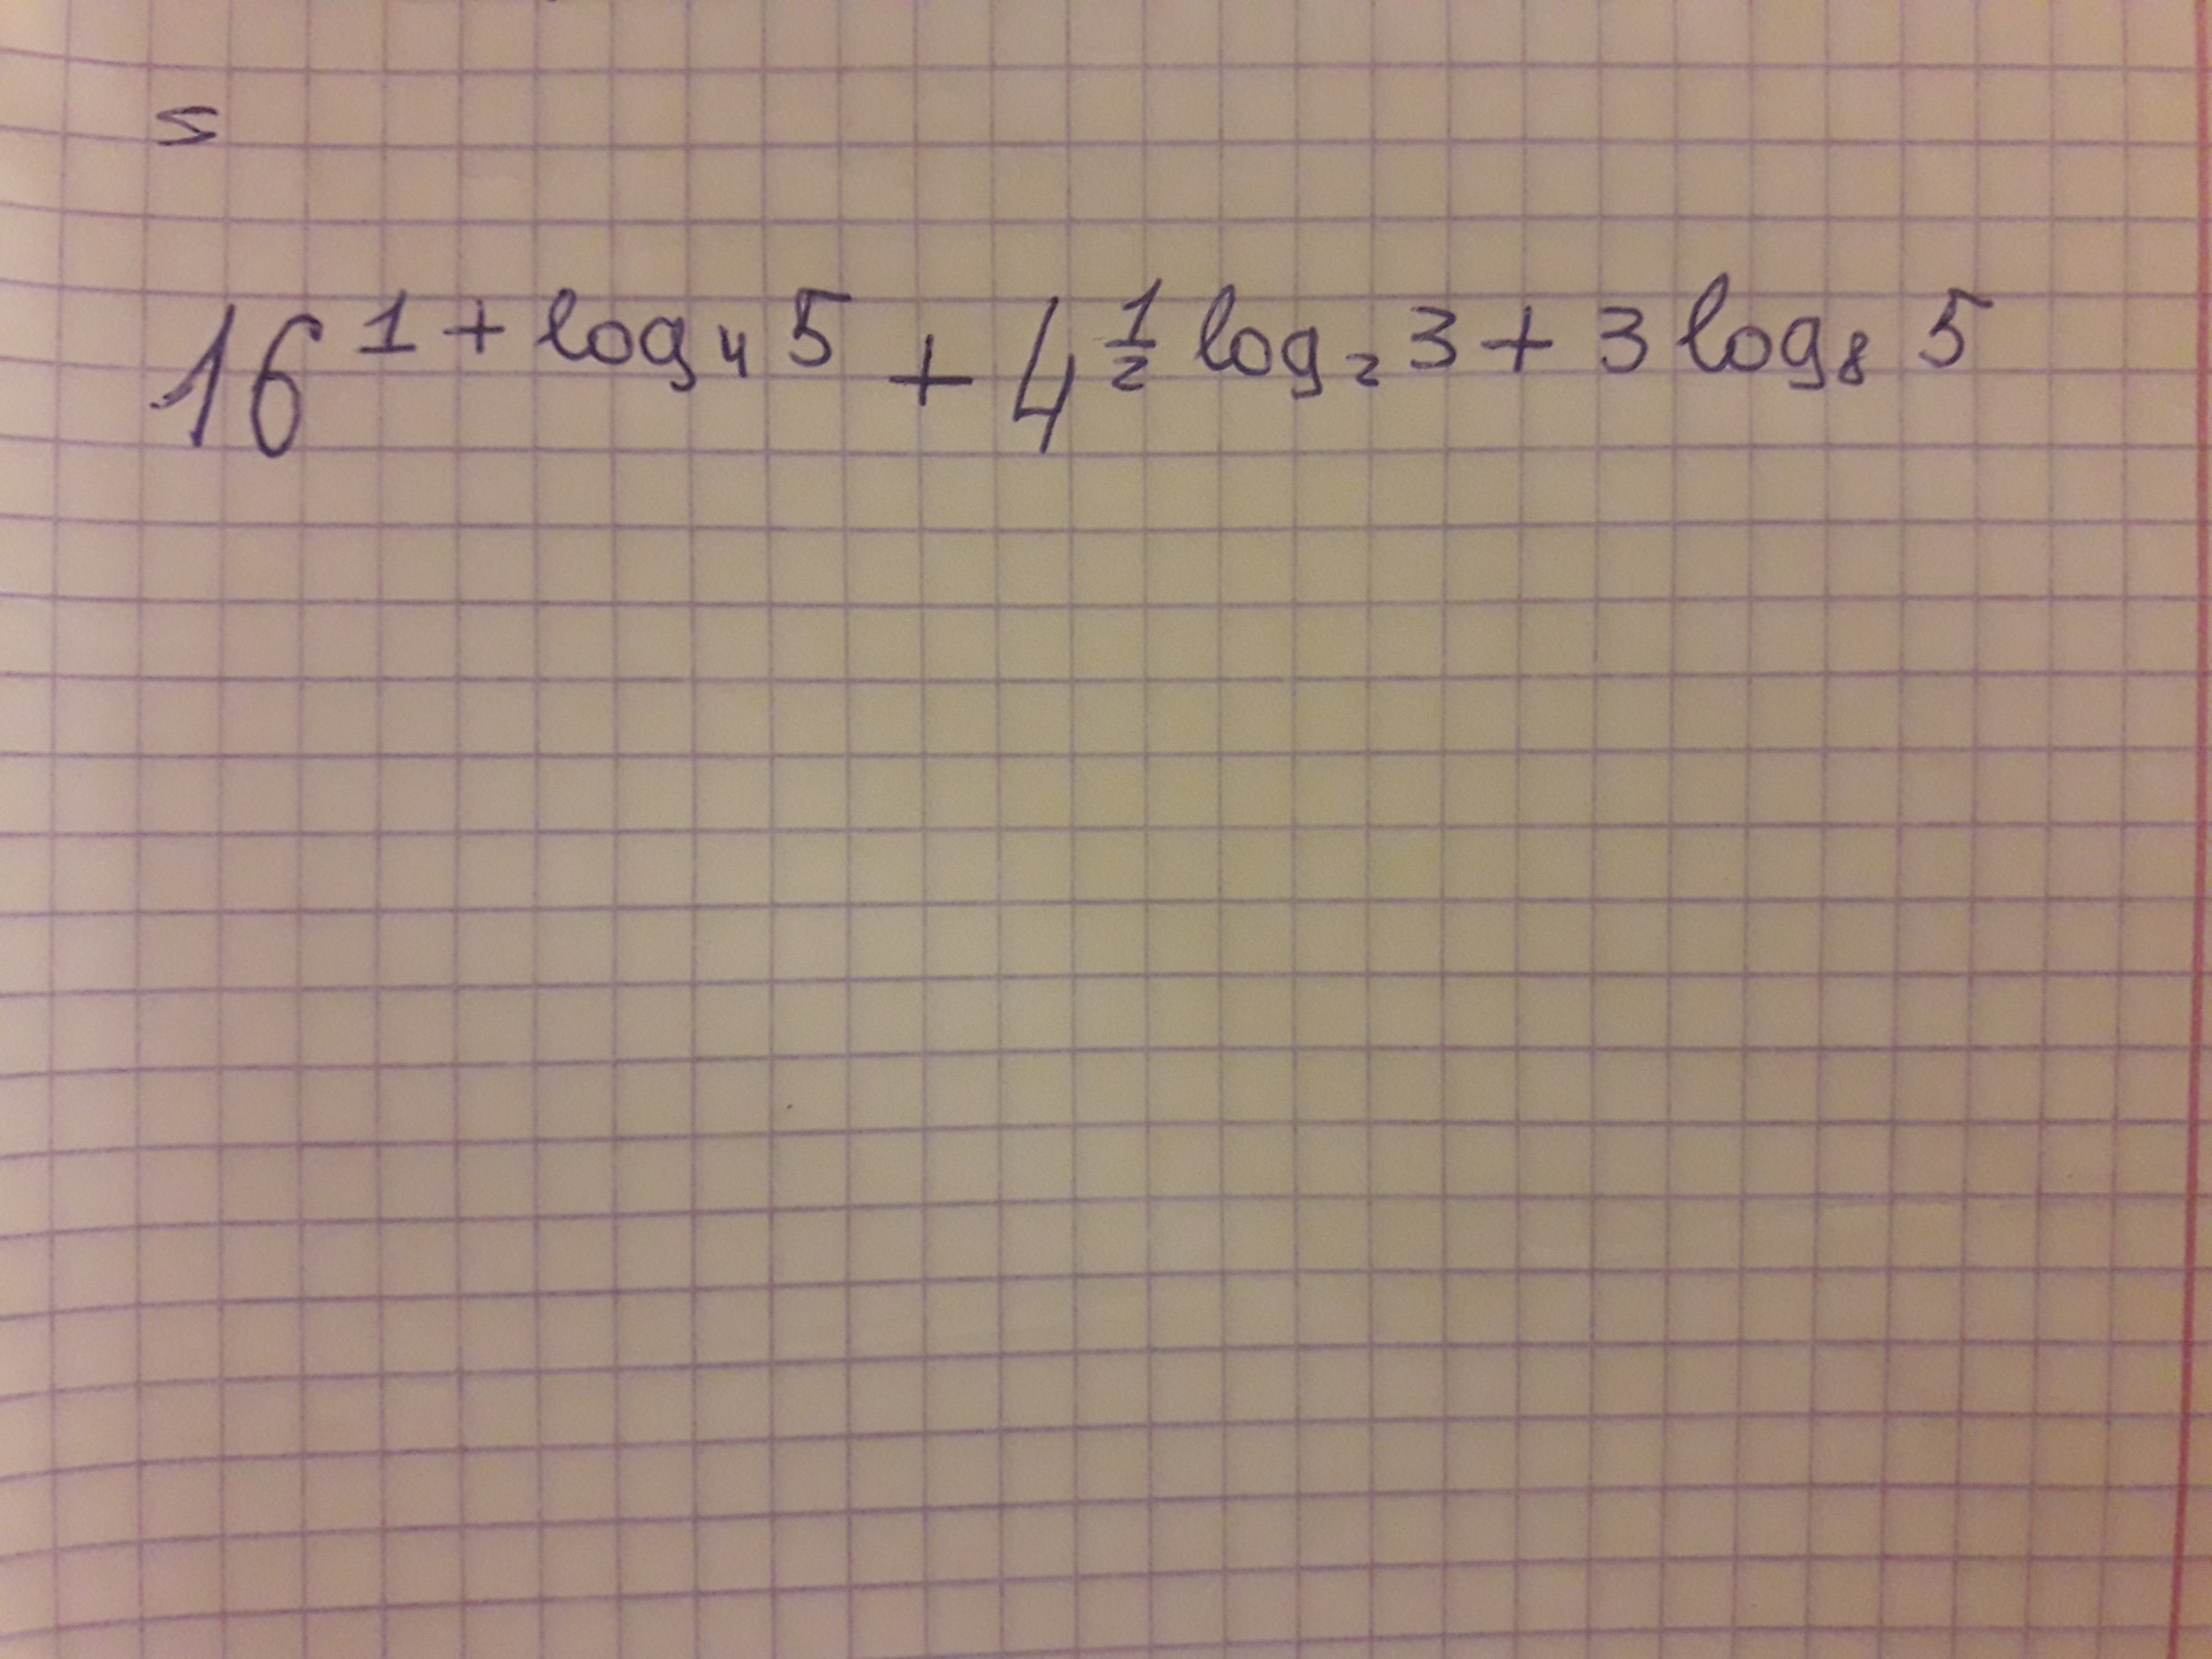 =
16^{1 + log_4 5} + 4^{\frac{1}{2} log_2 3 + 3 log_8 5}